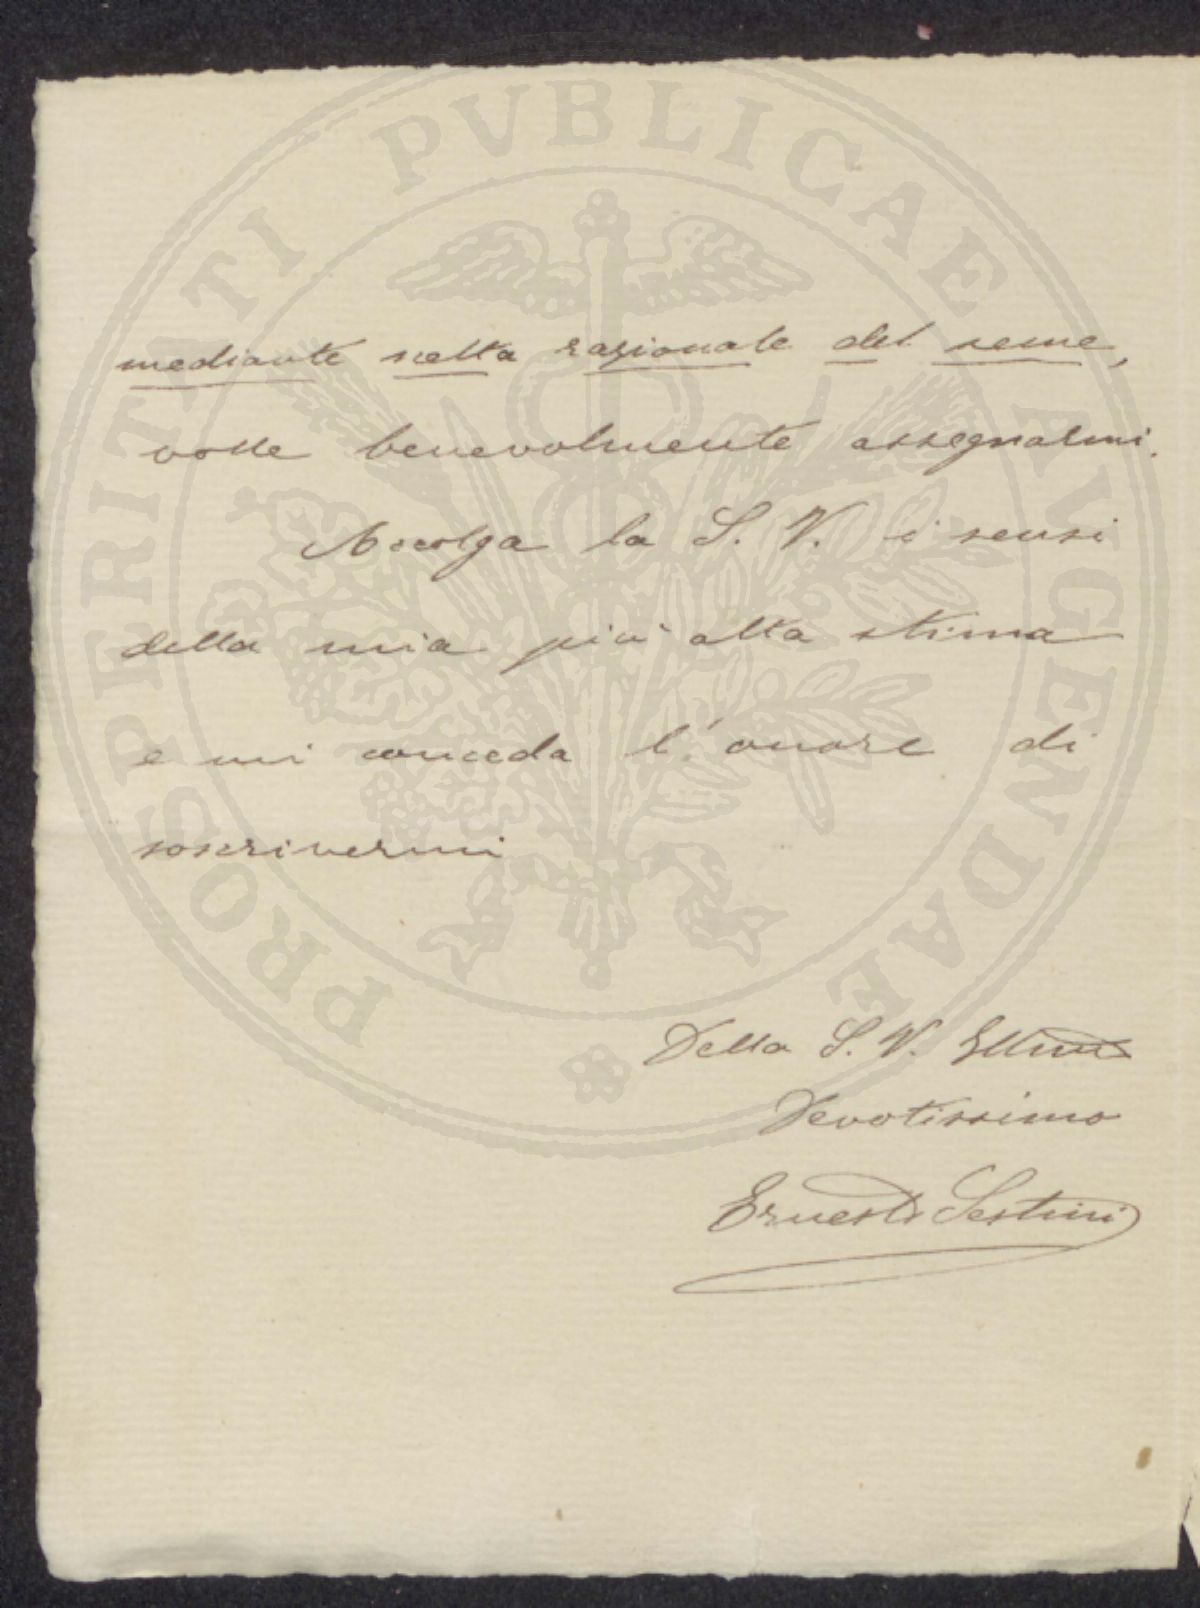 PROSPERITATI PVBLICAE AVGENDAE
mediante scelta razionale del seme,
volle benevolmente assegnarmi.
Accolga la S. V. i sensi
della mia più alta stima
e mi conceda l'onore di
soscrivermi
Della S. V. Illma
Devotissimo
Ernesto Sestini